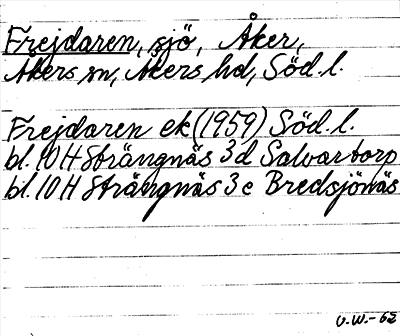 Frejdaren, sjö, Åker,
Åkers sn, Åkers hd, Söd.l.
Frejdaren ek (1959) Söd.l.
bl. 10H Strängnäs 3d Salvartorp
bl. 10H Strängnäs 3e Bredsjönäs
V.W.-62